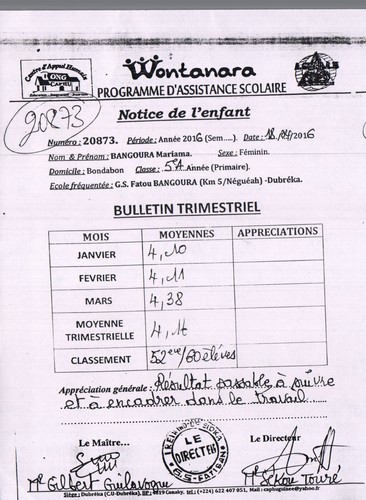 Centre d'Appui Humain
ONG
Wontanara
PROGRAMME D'ASSISTANCE SCOLAIRE
20873
Notice de l'enfant
Numéro : 20873. Période : Année 2016 (Sem.....). Date : 18/04/2016
Nom & Prénom : BANGOURA Mariama. Sexe : Féminin.
Domicile : Bondabon Classe : 5e A Année (Primaire).
Ecole fréquentée : G.S. Fatou BANGOURA (Km 5/Néguéah) -Dubréka.
BULLETIN TRIMESTRIEL
MOIS MOYENNES APPRECIATIONS
JANVIER 4,10
FEVRIER 4,11
MARS 4,38
MOYENNE
TRIMESTRIELLE 4,
CLASSEMENT 52eme/60 élèves
Appréciation générale : Résultat passable, à suivre
et à encadrer dans le travail
Le Maître... Le Directeur
LE
DIRECTEUR
Mr Gilbert Guilavogui Mr Sékou Touré
Siège : Dubréka (C.U-Dubréka). BP :